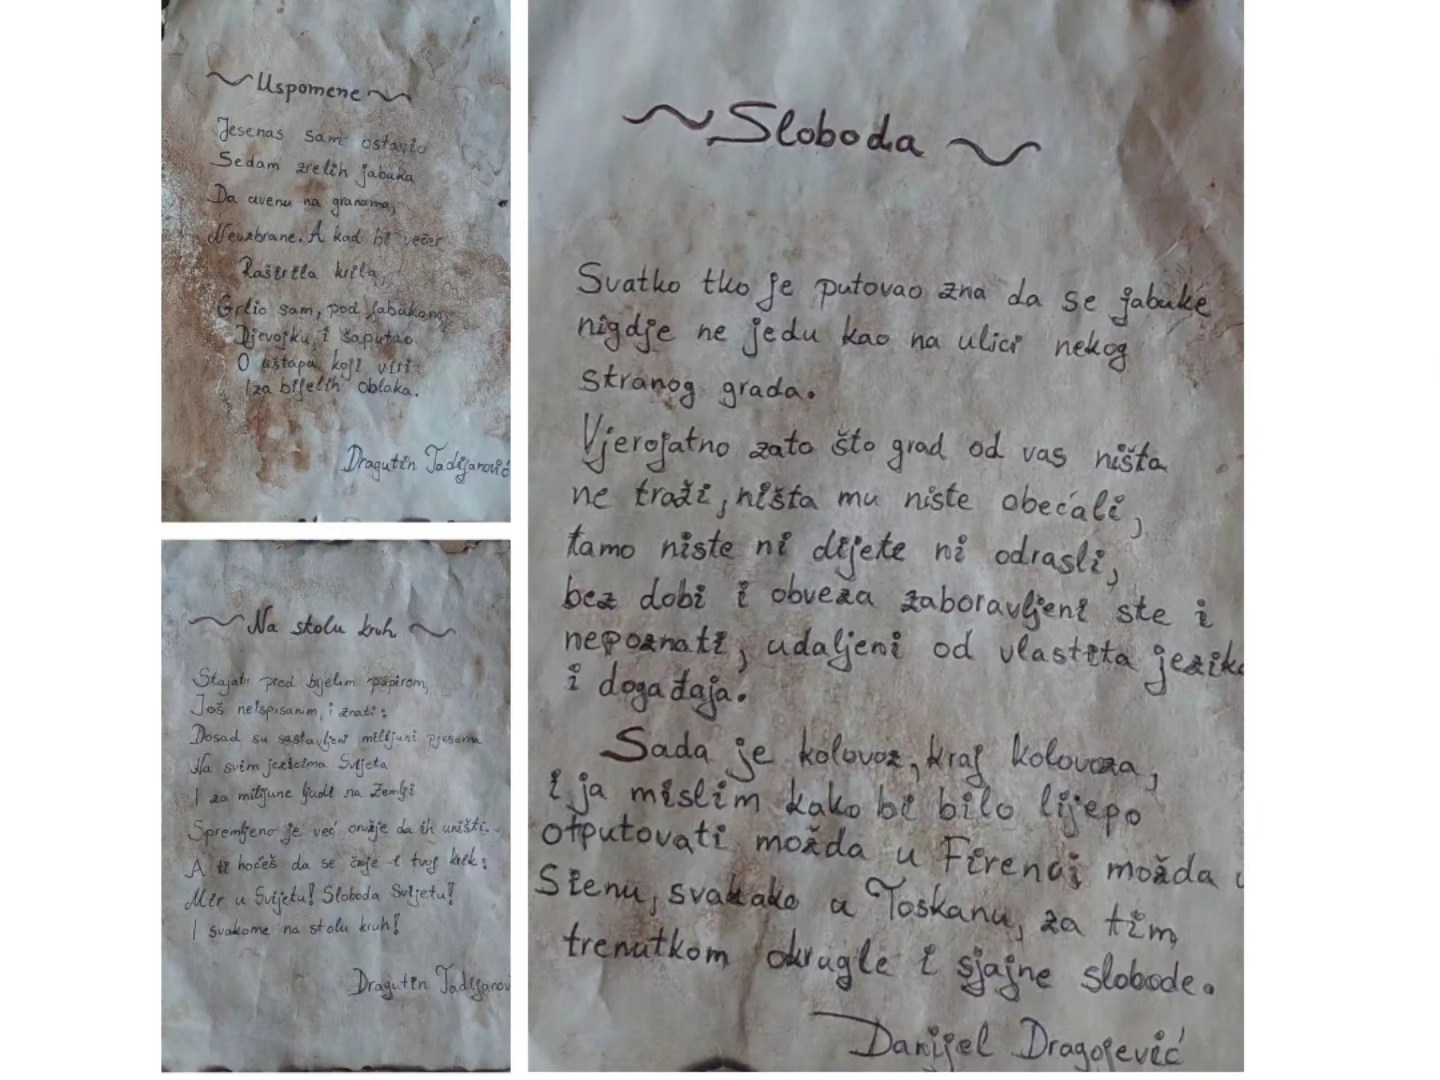 Uspomene
Jesenas sam ostavio
Sedam zrelih jabuka
Da avenu na granama,
Neuzbrane. A kad bi večer
Raširila krila,
Grlio sam, pod jabukom,
Djevojku, i šaputao
O uštapu koji viri
Iza bijelih oblaka.
Dragutin Tadijanović
Na stolu kruh
Stajati pred bijelim papirom,
Još neispisanim, i znati:
Dosad su sastavljeni milijuni pjesama
Na svim jezicima Svijeta
I za milijune ljudi na Zemlji
Spremljeno je već oružje da ih uništi..
A ti hoćeš da se čuje i tvoj krik:
Mir u Svijetu! Sloboda Svijetu!
I svakome na stolu kruh!
Dragutin Tadijanov
Sloboda
Svatko tko je putovao zna da se jabuke
nigdje ne jedu kao na ulici nekog
stranog grada.
Vjerojatno zato što grad od vas ništa
ne traži, ništa mu niste obećali,
tamo niste ni dijete ni odrasli,
bez dobi i obveza zaboravljeni ste i
nepoznati, udaljeni od vlastita jezika
i događaja.
Sada je kolovoz, kraj kolovoza,
i ja mislim kako bi bilo lijepo
otputovati možda u Firenci možda u
Sienu, svakako u Toskanu, za tim
trenutkom okrugle i sjajne slobode.
Danijel Dragojević